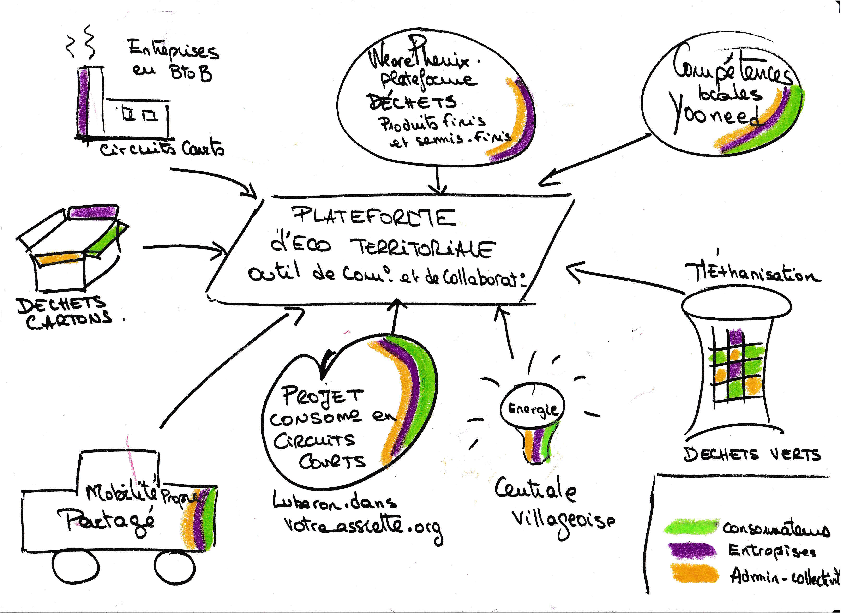 Entreprises
en BtoB
Circuits Courts
WearePhenix.
plateforme
DÉCHETS
Produits finis
et semis-finis
Compétences
locales
Yooneed
PLATEFORME
d'ECO TERRITORIALE
outil de com° et de collaborat°
DECHETS
CARTONS.
Méthanisation
DECHETS VERTS
PROJET
CONSOME en
CIRCUITS
COURTS
Luberon.dans
votreassiette.org
Energie
Centrale
Villageoise
Mobilité Propre
Partagé
Consommateurs
Entreprises
Admin-collectivit